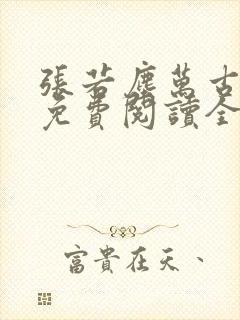 張若塵萬古
免費閱讀全
富貴在天、